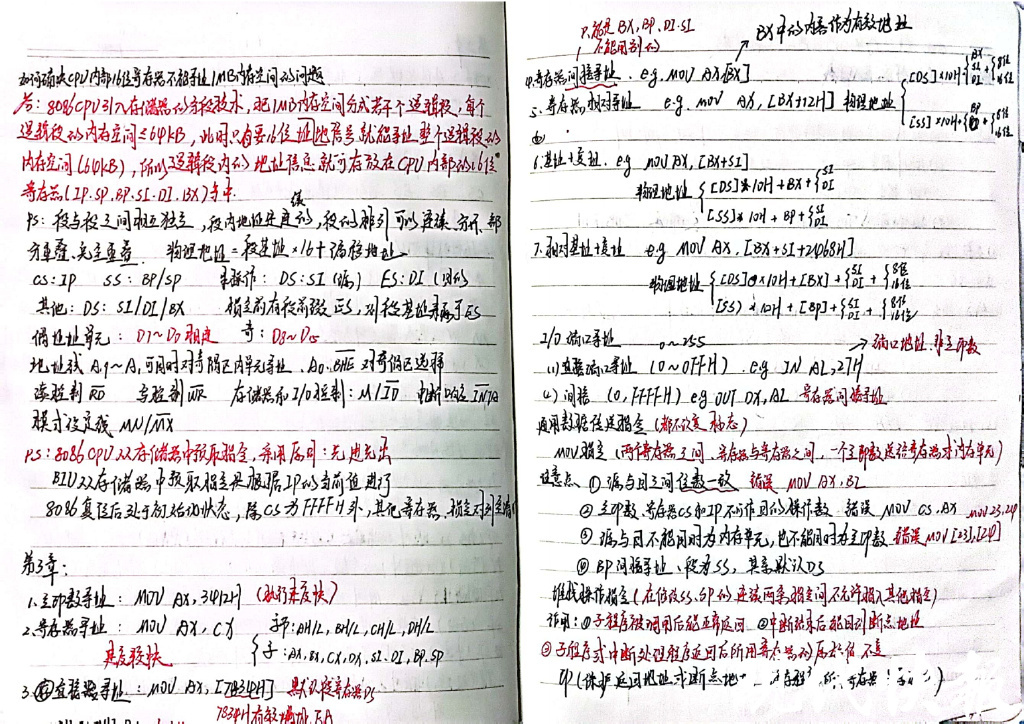 如何解决CPU内部16位寄存器不能寻址1MB内存空间的问题
答：8086CPU引入存储器的分段技术，把1MB内存空间分成若干个逻辑段，每个
逻辑段的内存空间≤64KB，此时只有要16位地址信号就能寻址整个逻辑段的
内存空间(64KB)，所以逻辑段内的地址信息就可存放在CPU内部的16位
寄存器(IP.SP.BP.SI.DI.BX)等中.
PS：段与段之间相互独立，段内地址连续的，段的排列可以连续、分开、部
分重叠、完全重叠. 物理地址=段基址×16+偏移地址
CS:IP SS:BP/SP 串操作：DS:SI(源) ES:DI(目的)
其他：DS：SI/DI/BX 指定前有段前缀ES，对段基址来源于ES
偶地址单元：D7~D0 奇：D8~D15
地址线A19~A1可同时对奇偶区内单元寻址、A0、BHE对奇偶区选择
读控制RD 写控制WR 存储器和I/O控制：M/IO 中断响应INTA
模式设定线MN/MX
PS：8086CPU从存储器中预取指令，采用原则：先进先出
BIU从存储器中预取指令是根据IP的当前值进行
8086复位后处于初始化状态，除CS为FFFFH外，其他寄存器、指令队列全清
第3章：
1.立即数寻址：MOV AX，3412H (执行速度快)
2.寄存器寻址：MOV AX，CX 字节：AH/L，BH/L，CH/L，DH/L
速度较快 字：AX，BX，CX，DX，SI，DI，BP，SP
3.直接寻址：MOV AX，[7834H] 默认段寄存器DS
7834H有效地址EA
只能是BX，BP，DI，SI
不能用别的
BX中的内容作为有效地址
4.寄存器间接寻址. e.g. MOV AX，[BX]
5.寄存器相对寻址 e.g. MOV AX，[BX+12H] 物理地址
[DS]×10H+{BX SI DI +{8位 16位
[SS]×10H+{BP +{8位 16位
6.基址+变址. e.g MOV AX，[BX+SI]
物理地址 [DS]×10H+BX+{SI DI
[SS]×10H+BP+{SI DI
7.相对基址+变址 e.g MOV AX，[BX+SI+2468H]
物理地址 [DS]×10H+[BX]+{SI DI +{8位 16位
[SS]×10H+[BP]+{SI DI +{8位 16位
I/O端口寻址 0~255 端口地址，非立即数
(1)直接端口寻址 (0~0FFH) e.g IN AL，27H
(2)间接 (0，FFFFH) e.g OUT DX，AL 寄存器间接寻址
通用数据传送指令 (都不改变标态)
MOV指令 (两个寄存器之间、寄存器与寄存器之间，一个立即数送给寄存器或内存单元)
注意点 ①源与目之间位数一致 错误 MOV AX，BL
②立即数、寄存器CS和IP不可作目的操作数 错误 MOV CS，AX MOV 23，24
③源与目不能同时为内存单元，也不能同时为立即数 错误MOV [23]，[24]
④BP间接寻址，段为SS，其余默认DS
堆栈操作指令(在修改SS、SP的连续两条指令间不允许插入其他指令)
作用：①子程序被调用后能正常返回 ②中断结束后能回到断点地址
③子程序或中断处理程序返回后所用寄存器的原始值不变
即(保护返回地址或断点地